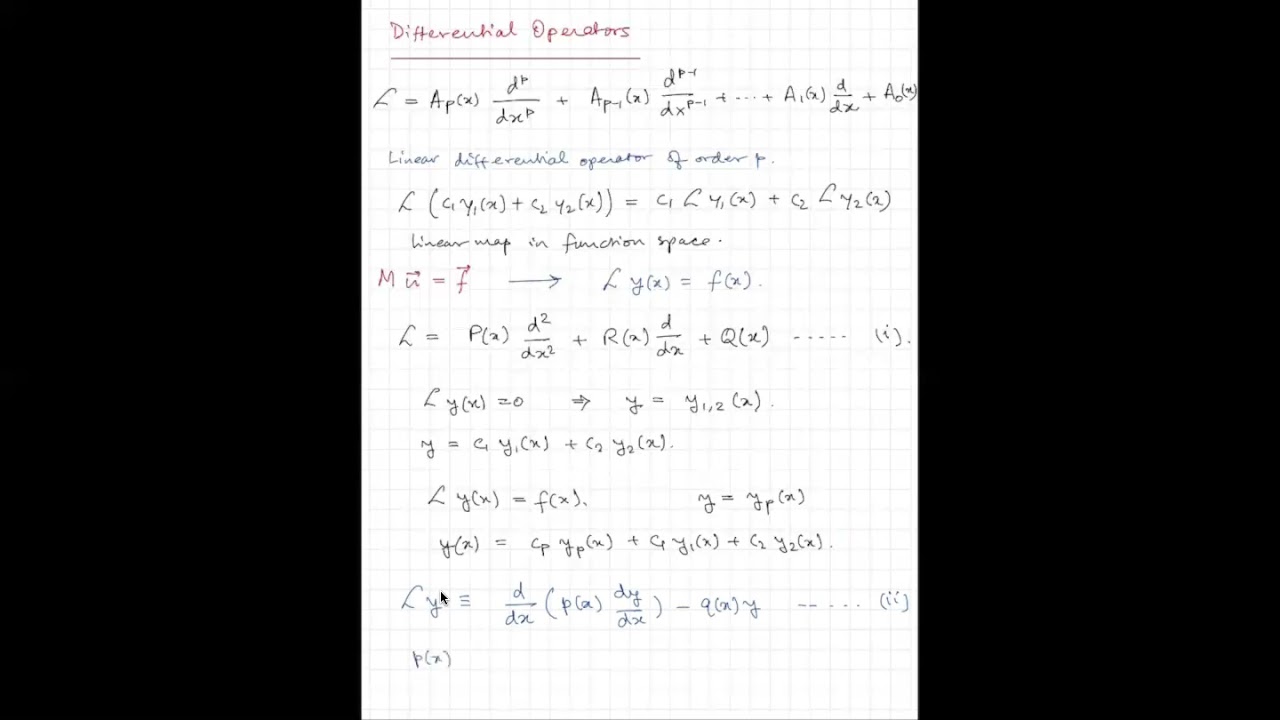 Differential Operators
ℒ = A_p(x) d^p/dx^p + A_{p-1}(x) d^{p-1}/dx^{p-1} + ... + A_1(x) d/dx + A_0(x)
Linear differential operator of order p.
ℒ (c_1 y_1(x) + c_2 y_2(x)) = c_1 ℒ y_1(x) + c_2 ℒ y_2(x)
linear map in function space.
M u⃗ = f⃗ ⟶ ℒ y(x) = f(x).
ℒ = P(x) d²/dx² + R(x) d/dx + Q(x) ..... (i).
ℒ y(x) = 0 ⇒ y = y_{1,2}(x).
y = c_1 y_1(x) + c_2 y_2(x).
ℒ y(x) = f(x). y = y_p(x)
y(x) = c_p y_p(x) + c_1 y_1(x) + c_2 y_2(x).
ℒ y ≡ d/dx (p(x) dy/dx) - q(x) y ..... (ii)
p(x)